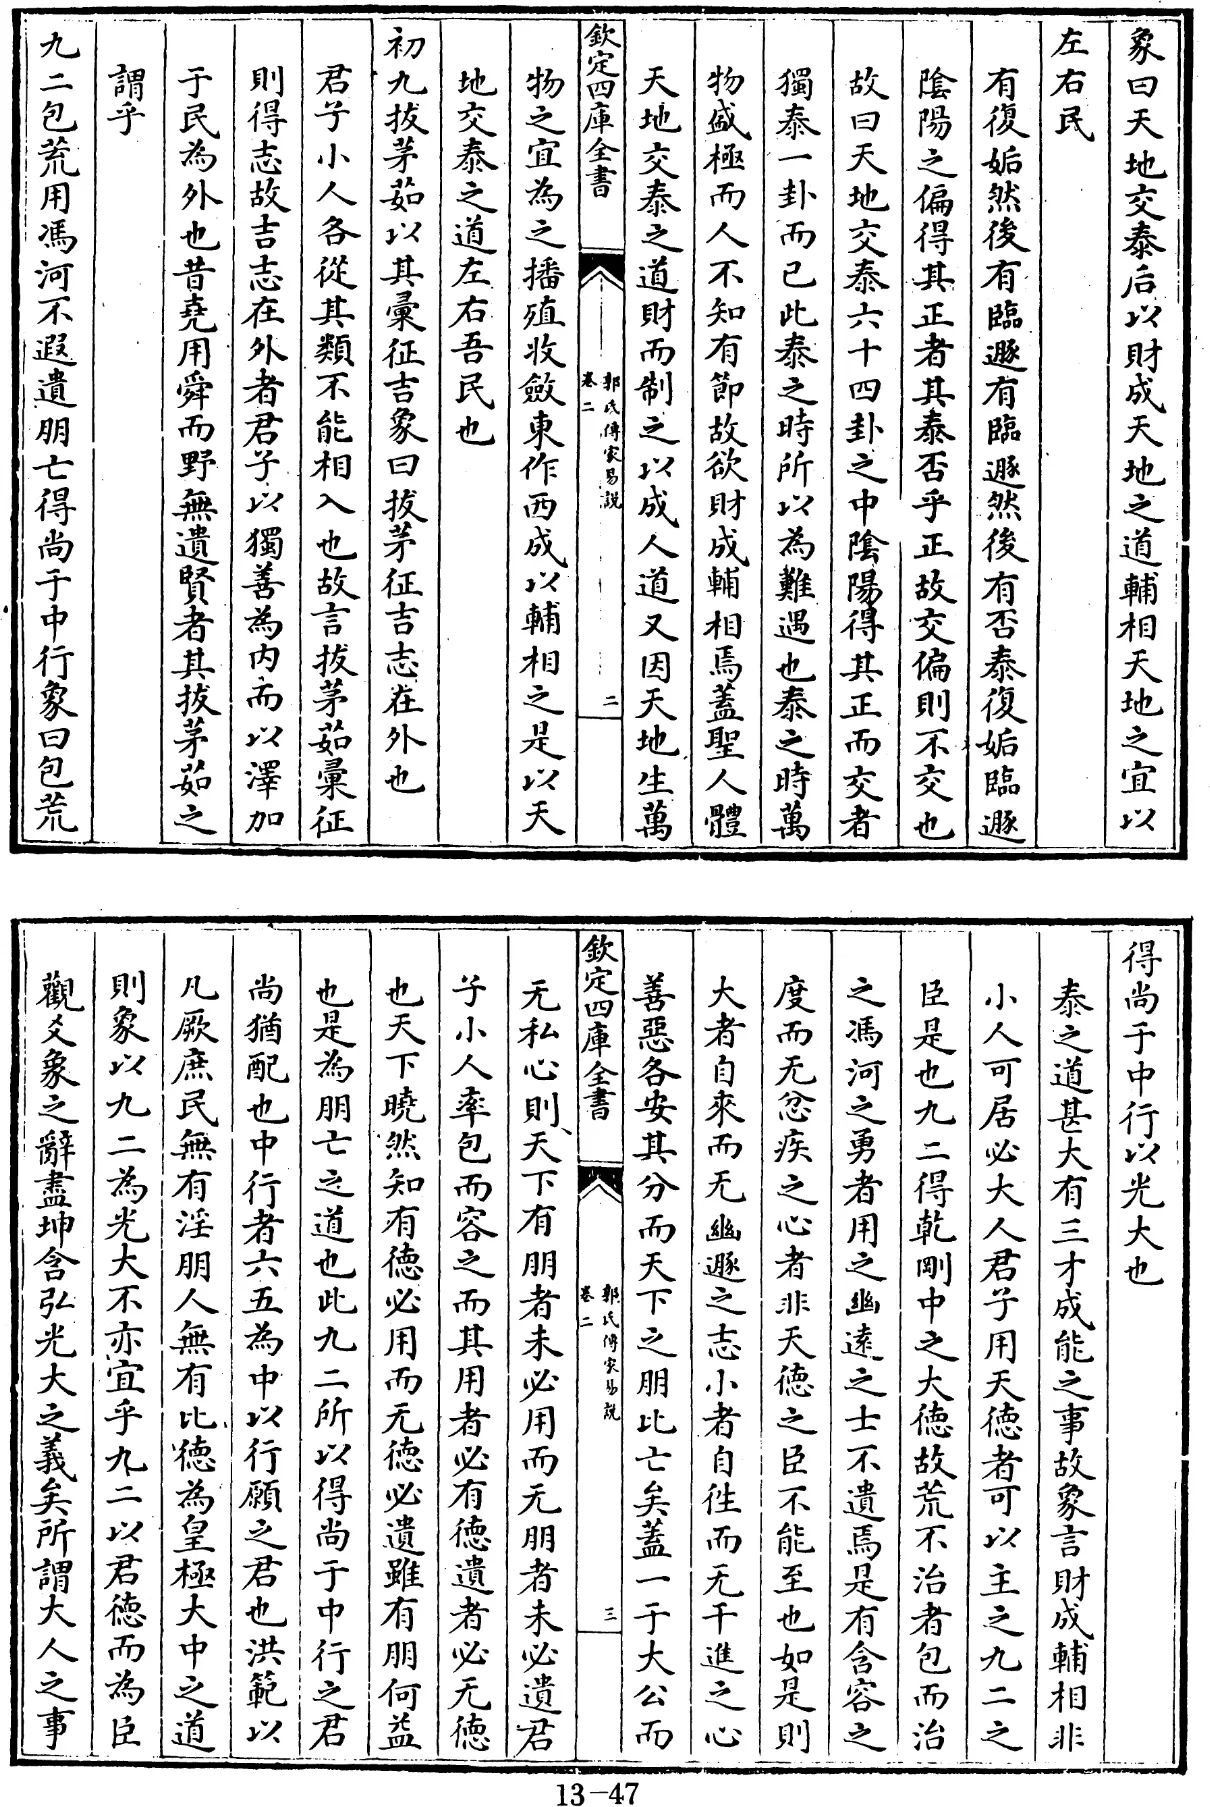 象曰天地交泰后以財成天地之道輔相天地之宜以
左右民
有復姤然後有臨遯有臨遯然後有否泰復姤臨遯
陰陽之偏得其正者其泰否乎正故交偏則不交也
故曰天地交泰六十四卦之中陰陽得其正而交者
獨泰一卦而已此泰之時所以為難遇也泰之時萬
物盛極而人不知有節故欲財成輔相焉蓋聖人體
天地交泰之道財而制之以成人道又因天地生萬
欽定四庫全書
郭氏傳家易說
卷二
二
物之宜為之播殖收斂東作西成以輔相之是以天
地交泰之道左右吾民也
初九拔茅茹以其彙征吉象曰拔茅征吉志在外也
君子小人各從其類不能相入也故言拔茅茹彙征
則得志故吉志在外者君子以獨善為内而以澤加
于民為外也昔堯用舜而野無遺賢者其拔茅茹之
謂乎
九二包荒用馮河不遐遺朋亡得尚于中行象曰包荒
得尚于中行以光大也
泰之道甚大有三才成能之事故象言財成輔相非
小人可居必大人君子用天德者可以主之九二之
臣是也九二得乾剛中之大德故荒不治者包而治
之馮河之勇者用之幽遠之士不遺焉是有含容之
度而无忿疾之心者非天德之臣不能至也如是則
大者自來而无幽遯之志小者自徃而无干進之心
善惡各安其分而天下之朋比亡矣蓋一于大公而
欽定四庫全書
郭氏傳家易說
卷二
三
无私心則天下有朋者未必用而无朋者未必遺君
子小人率包而容之而其用者必有德遺者必无德
也天下曉然知有德必用而无德必遺雖有朋何益
也是為朋亡之道也此九二所以得尚于中行之君
尚猶配也中行者六五為中以行願之君也洪範以
凡厥庶民無有淫朋人無有比德為皇極大中之道
則象以九二為光大不亦宜乎九二以君德而為臣
觀爻象之辭盡坤含弘光大之義矣所謂大人之事
13-47